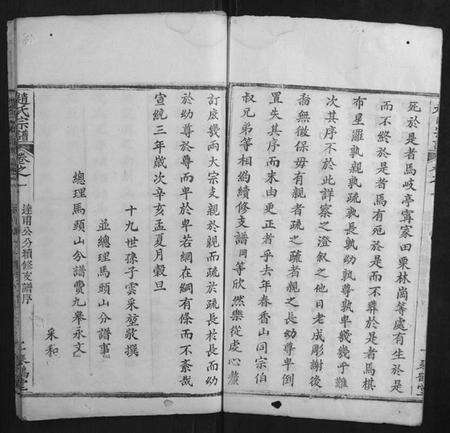 死於是者馬岐亭寗家田栗林崗等處有生於是
而不終於是者馬有死於是而不葬於是者馬棋
布星羅孰親孰疏孰長孰幼孰尊孰卑幾幾乎難
次其序不於此詳察之澄叙之他日老成彫謝後
裔無徵保毋有親者疏之疏者親之長幼尊卑倒
置失其序而末由更正者乎去年春香山同宗伯
叔兄弟等相約續修支譜同等欣然樂從處心釐
訂庶幾兩大宗支親於親而疏於疏長於長而幼
於幼尊於尊而卑於卑若網在綱有條而不紊哉
宣統三年歲次辛亥孟夏月穀旦
十九世孫子雲采堃敬撰
並總理馬頭山分譜事
總理馬頭山分譜費九皋永文
采和
趙氏宗譜
卷之一
達甫公分續修支譜序